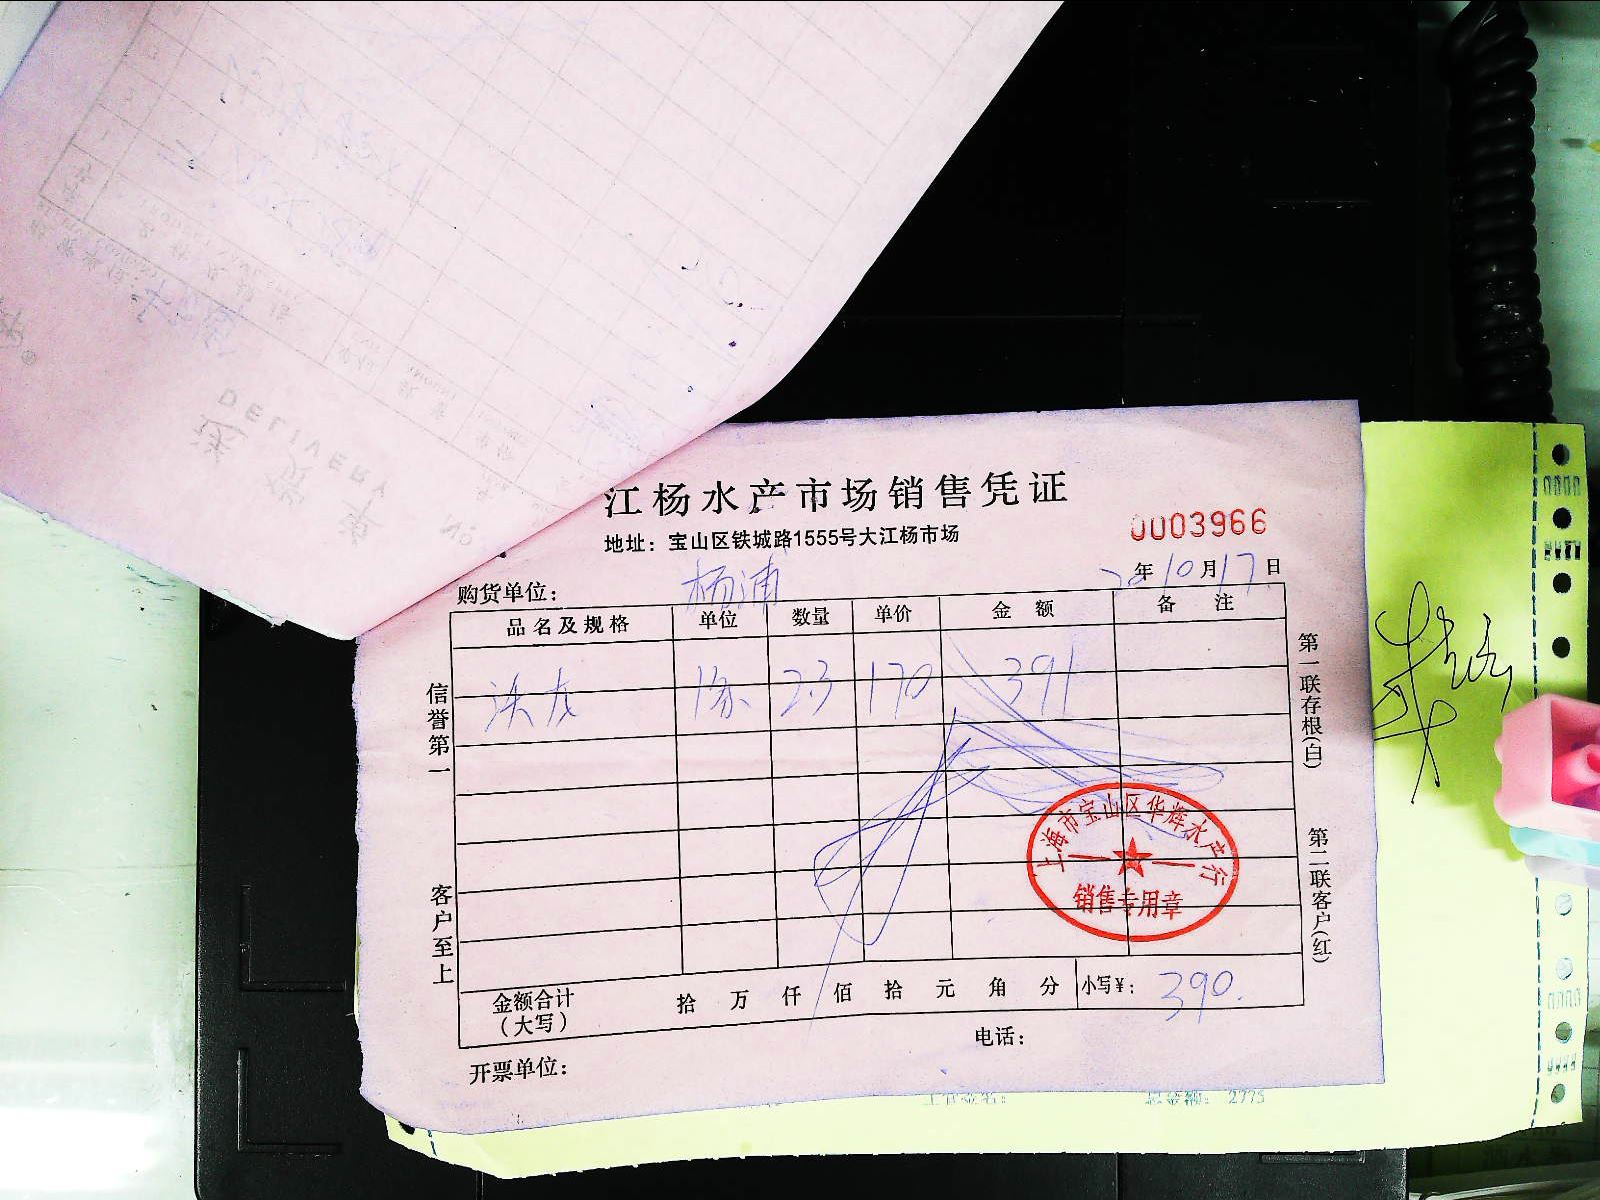 DELIVERY
江杨水产市场销售凭证
0003966
地址：宝山区铁城路1555号大江杨市场
购货单位：杨浦
20年10月17日
品名及规格 单位 数量 单价 金额 备注
2.3 170 391
信誉第一
客户至上
第一联存根(白)
第二联客户(红)
上海市宝山区华辉水产行
销售专用章
金额合计（大写） 拾 万 仟 佰 拾 元 角 分 小写¥：390.
电话：
开票单位：
总金额： 2775